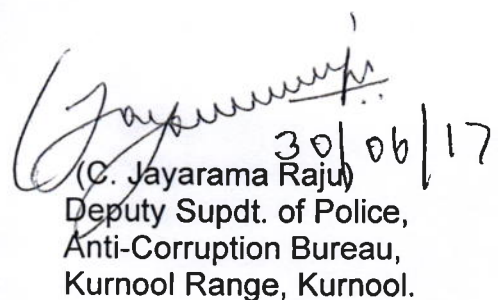 30/06/17
(C. Jayarama Raju)
Deputy Supdt. of Police,
Anti-Corruption Bureau,
Kurnool Range, Kurnool.